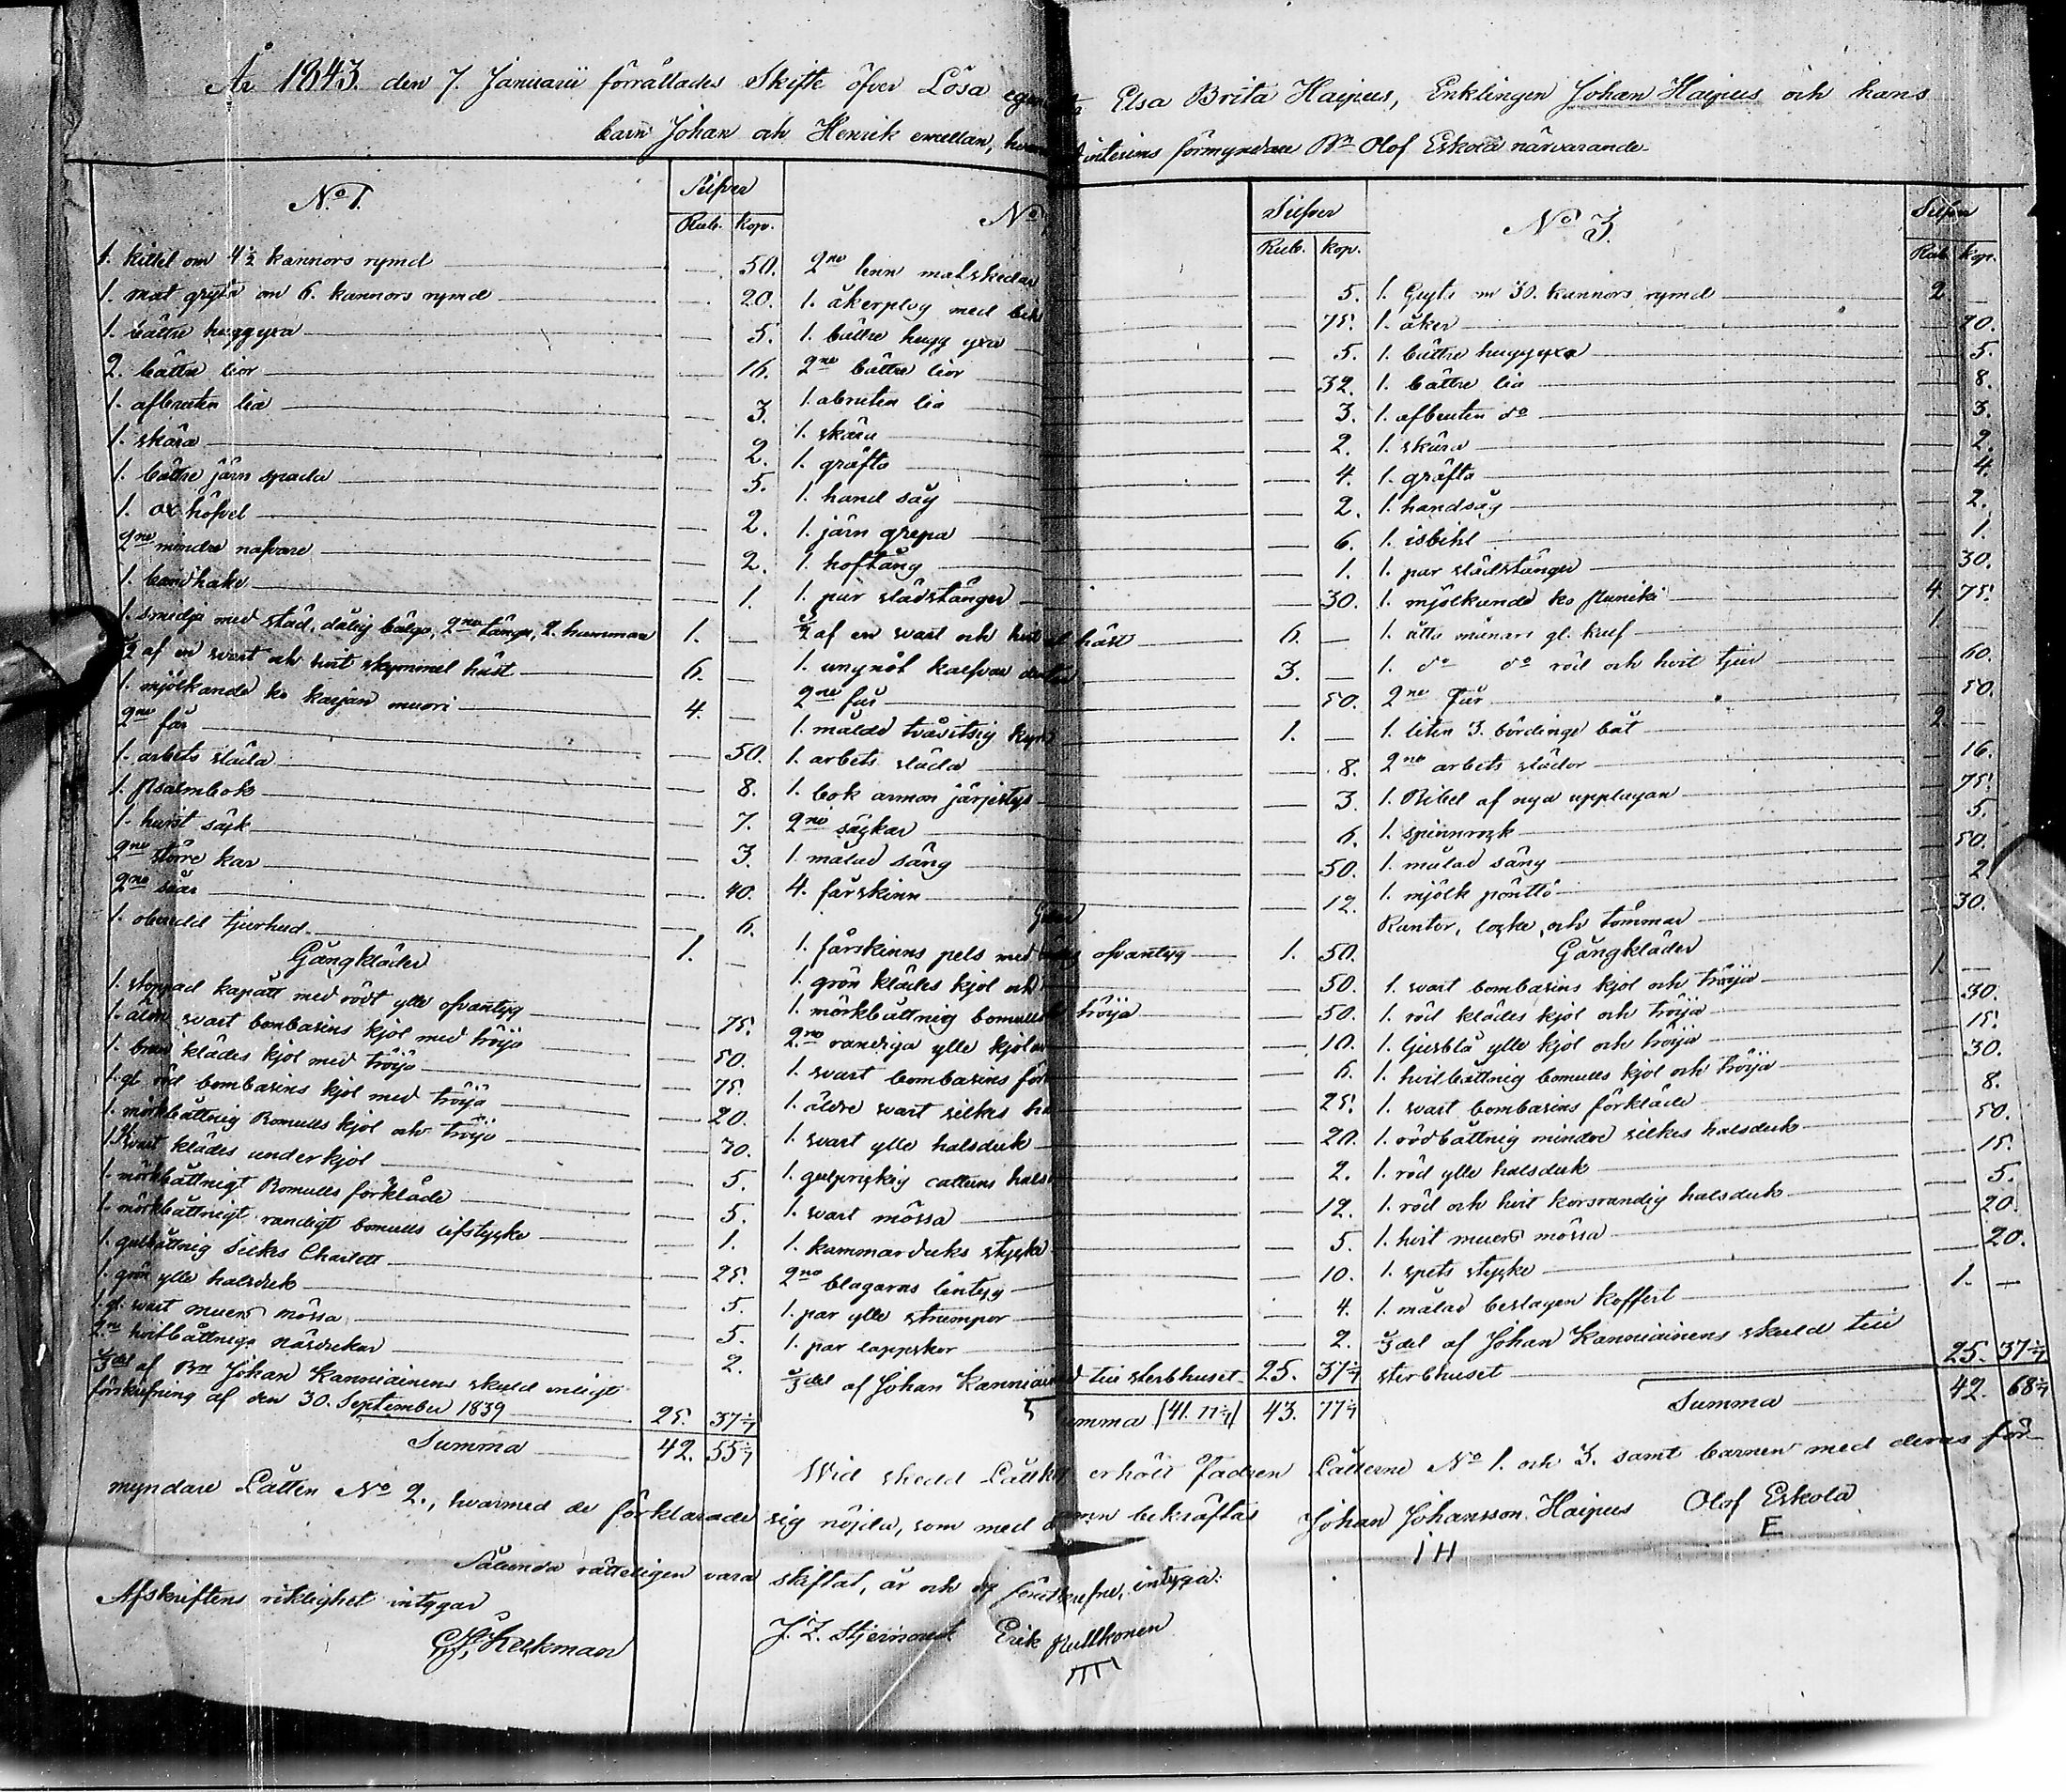 År 1843. den 7. Januarii förrättades Skifte öfver Lösa Elsa Brita Haipus, Enklingen Johan Haipus och hans
barn Johan och Henrik emellan, interims förmyndare Bn Olof Eskola närvarande.
No 1.
Silfver
Rub. kop.
1. kittel om 4½ kannors rymd 50.
1. mat gryta om 6. kannors rymd 20.
1. bättre huggyxa 5.
2. bättre lior 16.
1. afbruten lia 3.
1. skära 2.
1. bättre järn spada 5.
1. ox höfvel 2.
2ne mindre nafvare 2.
1. bandhake 1.
1. smedja med städ, dålig bälga, 2ne tänger, 2. hammare 1. —
½ af en svart och hvit skymmel häst 6. —
1. mjölkande ko karjan muori 4. —
2ne får 50.
1. arbets släda 8.
1. Psalmbok 7.
1. hurst säck 3.
2ne större kar 40.
2ne såar 6.
1. oberedd tjurhud 1. —
Gångkläder
1. stoppad kapått med rödt ylle ofvantyg 75.
1. svart bombasins kjol med tröija 50.
1. klädes kjol med tröija 75.
1. gl. röd bombasins kjol med tröija 20.
1. mörkbåttnig Bomulls kjol och tröija 20.
1. svart klädes underkjol 5.
1. mörkbåttnigt Bomulls förkläde 5.
1. mörkbåttnigt randigt bomulls lifstycke 1.
1. gulbåttnig Silkes Charlett 25.
1. grön ylle halsduk 5.
1. gl. svart muers mössa 5.
2ne hvitbåttniga näsdukar 2.
⅓del af Bn Johan Kanniainens skuld enligt
förskrifning af den 30. September 1839 25. 37 1/7
Summa 42. 55 1/7
No
Silfver
Rub. kop.
2ne tenn matskedar 5.
1. åkerplog med 75.
1. bättre hugg yxa 5.
2ne bättre lior 32.
1. abruten lia 3.
1. skära 2.
1. gräfta 4.
1. hand såg 2.
1. järn grepa 6.
1. hoftång 1.
1. par slädstänger 30.
½ af en svart och hvit häst 6. —
1. ungnöt kalfvar 3. —
2ne får 50.
1. målad tvåvitsig 1. —
1. arbets släda 8.
1. bok armon järjestys 3.
2ne säckar 6.
1. målad säng 50.
4. fårskinn 12.
1. fårskinns pels med ofvantyg 1. 50.
1. grön klädes kjol och 50.
1. mörkbåttnig bomulls tröija 50.
2ne randiga ylle kjolar 10.
1. svart bombasins 6.
1. äldre svart silkes 25.
1. svart ylle halsduk 20.
1. gulprickig cattuns 2.
1. svart mössa 12.
1. kammarduks stycke 5.
2ne blagarns lintyg 10.
1. par ylle strumpor 4.
1. par lappskor 2.
⅓del af Johan till sterbhuset 25. 37 1/7
Summa (41. 77 1/7) 43. 77 1/7
No 3.
Silfver
Rub. kop.
1. Gryta om 30. kannors rymd 2. —
1. åker 70.
1. bättre huggyxa 5.
1. bättre lia 8.
1. afbruten do 3.
1. skära 2.
1. gräfta 4.
1. handsåg 2.
1. isbihl 1.
1. par slädstänger 30.
1. mjölkande ko Muniki 4. 75.
1. åtta månars gl. kalf 1. —
1. do do röd och hvit tjur 60.
2ne Får 50.
1. liten 3. bördinge båt 2. —
2ne arbets slädor 16.
1. Bibel af nya upplagan 75.
1. spinnrock 5.
1. målad säng 50.
1. mjölk pönttö 2.
Runtor, locke och tömmar 30.
Gångkläder
1. svart bombasins kjol och tröija 1. —
1. röd klädes kjol och tröija 30.
1. ljusblå ylle kjol och tröija 15.
1. hvitbåttnig bomulls kjol och tröija 30.
1. svart bombasins förkläde 8.
1. rödbåttnig mindre silkes halsduk 50.
1. röd ylle halsduk 15.
1. röd och hvit korsrandig halsduk 5.
1. hvit muers mössa 20.
1. spets stycke 20.
1. målad beslagen koffert 1. —
⅓del af Johan Kanniainens skuld till
sterbhuset 25. 37 1/7
Summa 42. 68 1/7
Wid skedd erhöll Fadren Låtterne No 1. och 3. samt barnen med deras för-
myndare Låtten No 2., hvarmed de förklarade sig nöjda, som med bekräftas Johan Johansson Haipus Olof Eskola
I H E
Sålunda rätteligen vara skiftat, är och intyga.
Afskriftens riktighet intygar
J. Z. Stjerncreutz Erik Pulkkonen
Keckman